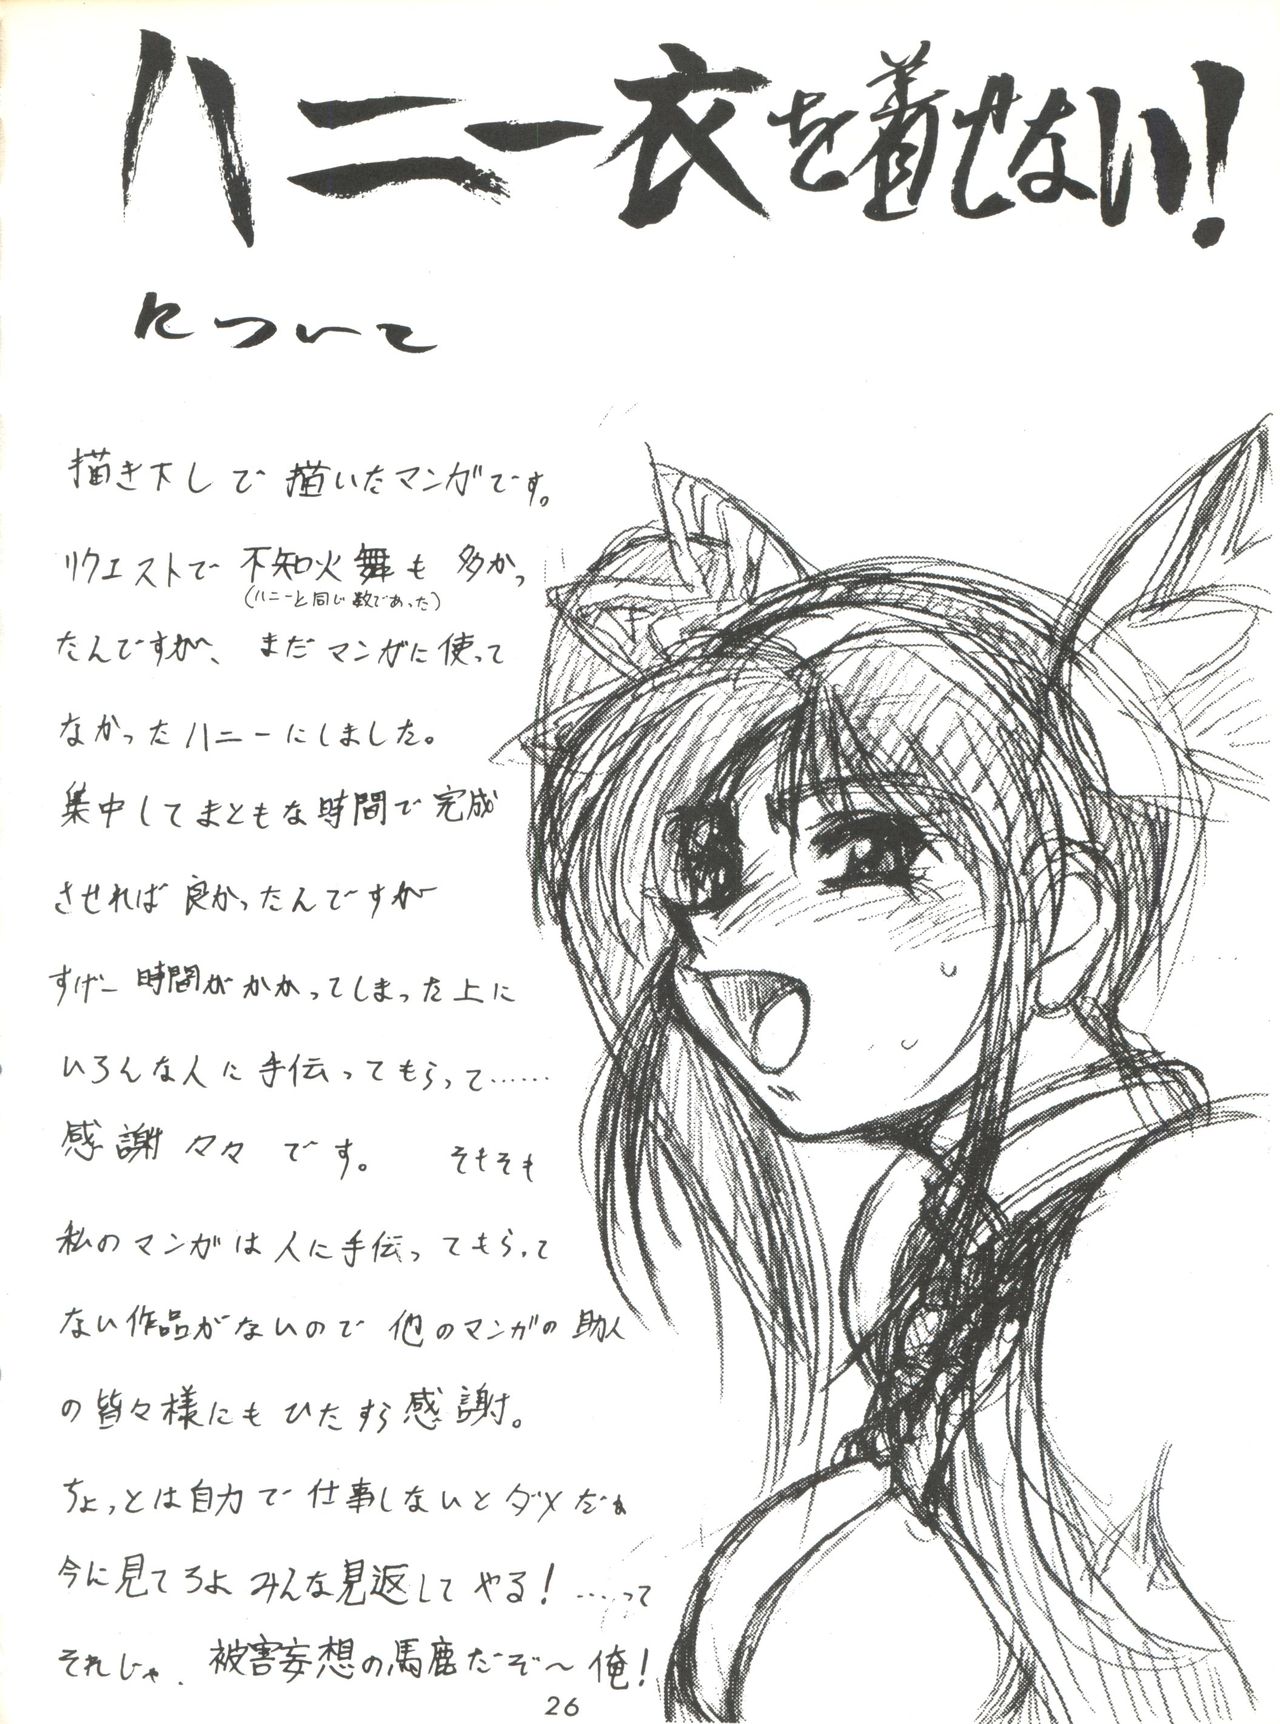 ハニー衣を着せない!
について
描き下しで描いたマンガです。
リクエストで不知火舞も多かっ
(ハニーと同じ数であった)
たんですが、まだマンガに使って
なかったハニーにしました。
集中してまともな時間で完成
させれば良かったんですが
すげー時間がかかってしまった上に
いろんな人に手伝ってもらって……
感謝々々です。 そもそも
私のマンガは人に手伝ってもらって
ない作品がないので他のマンガの助人
の皆々様にもひたすら感謝。
ちょっとは自力で仕事しないとダメだぁ
今に見てろよみんな見返してやる!……って
それじゃ、被害妄想の馬鹿だぞ〜俺!
26